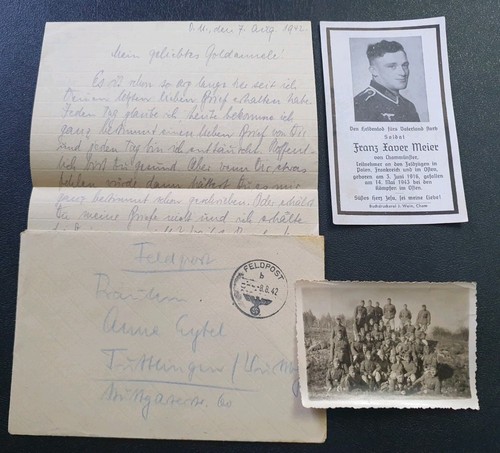 O.U., den 7. Aug. 1942.
Mein geliebtes Goldannele!
Es ist schon so arg lange her seit ich
Deinen letzten lieben Brief erhalten habe.
Jeden Tag glaube ich heute bekomme ich
ganz bestimmt einen lieben Brief von Dir
und jeden Tag bin ich enttäuscht. Hoffent-
lich bist Du gesund. Aber wenn Dir etwas
ganz bestimmt schon geschrieben. Oder erhältst
Du meine Briefe nicht und ich erhalte
Feldpost
Fräulein
Anna Eytel
Tuttlingen / Württ.
Stuttgarterstr.
FELDPOST
b
-8.8.42
Den Heldentod fürs Vaterland starb
Soldat
Franz Xaver Meier
von Chammünster,
Teilnehmer an den Feldzügen in
Polen, Frankreich und im Osten,
geboren am 3. Juni 1916, gefallen
am 14. Mai 1943 bei den
Kämpfen im Osten.
Süßes Herz Jesu, sei meine Liebe!
Buchdruckerei J. Wein, Cham